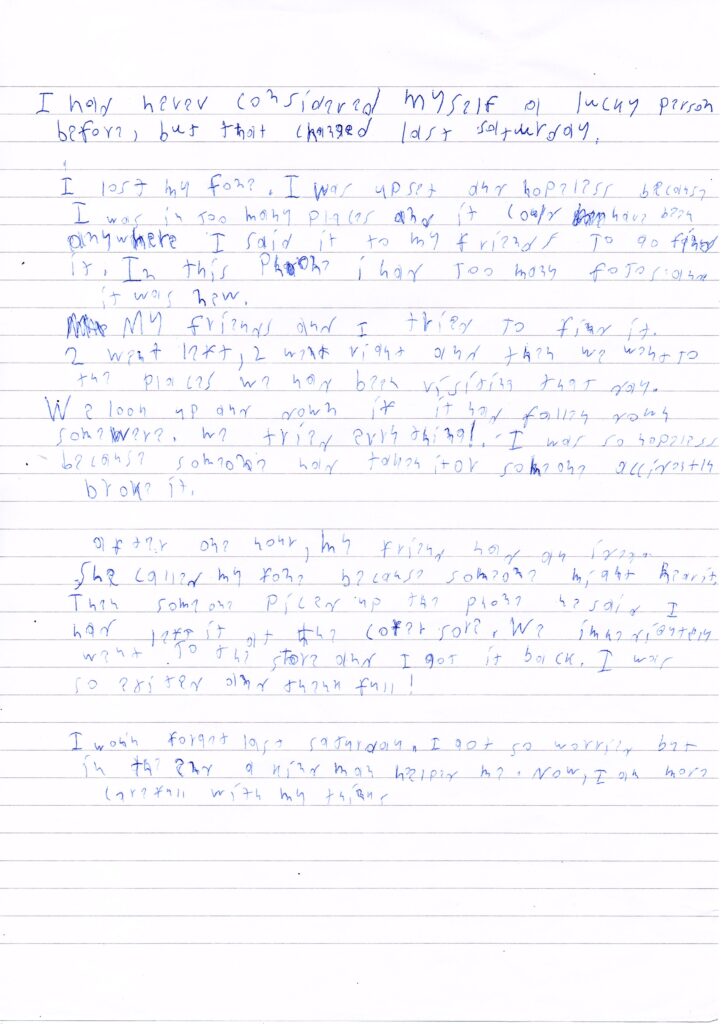 I had never considered myself a lucky person
before, but that changed last saturday.
I lost my fone. I was upset and hopeless because
I was in too many places and it could have been
anywhere I said it to my friends to go find
it. In this Phone i had too many fotos and
it was new.
My friends and I tried to find it.
2 went left, 2 went right and then we went to
the places we had been visiting that day.
We look up and down if it had fallen down
somewere. we tried evrything!. I was so hopeless
because someone had taken it or someone accidently
broke it.
after one hour, my friend had an idea.
She called my fone because someone might hear it.
Then someone piced up the phone he said I
had left it at the coffer sore. We immediately
went to the store and I got it back. I was
so exited and thank full!
I won't forget last saturday. I got so worried but
in the end a kind man helped me. Now, I am more
carefull with my things